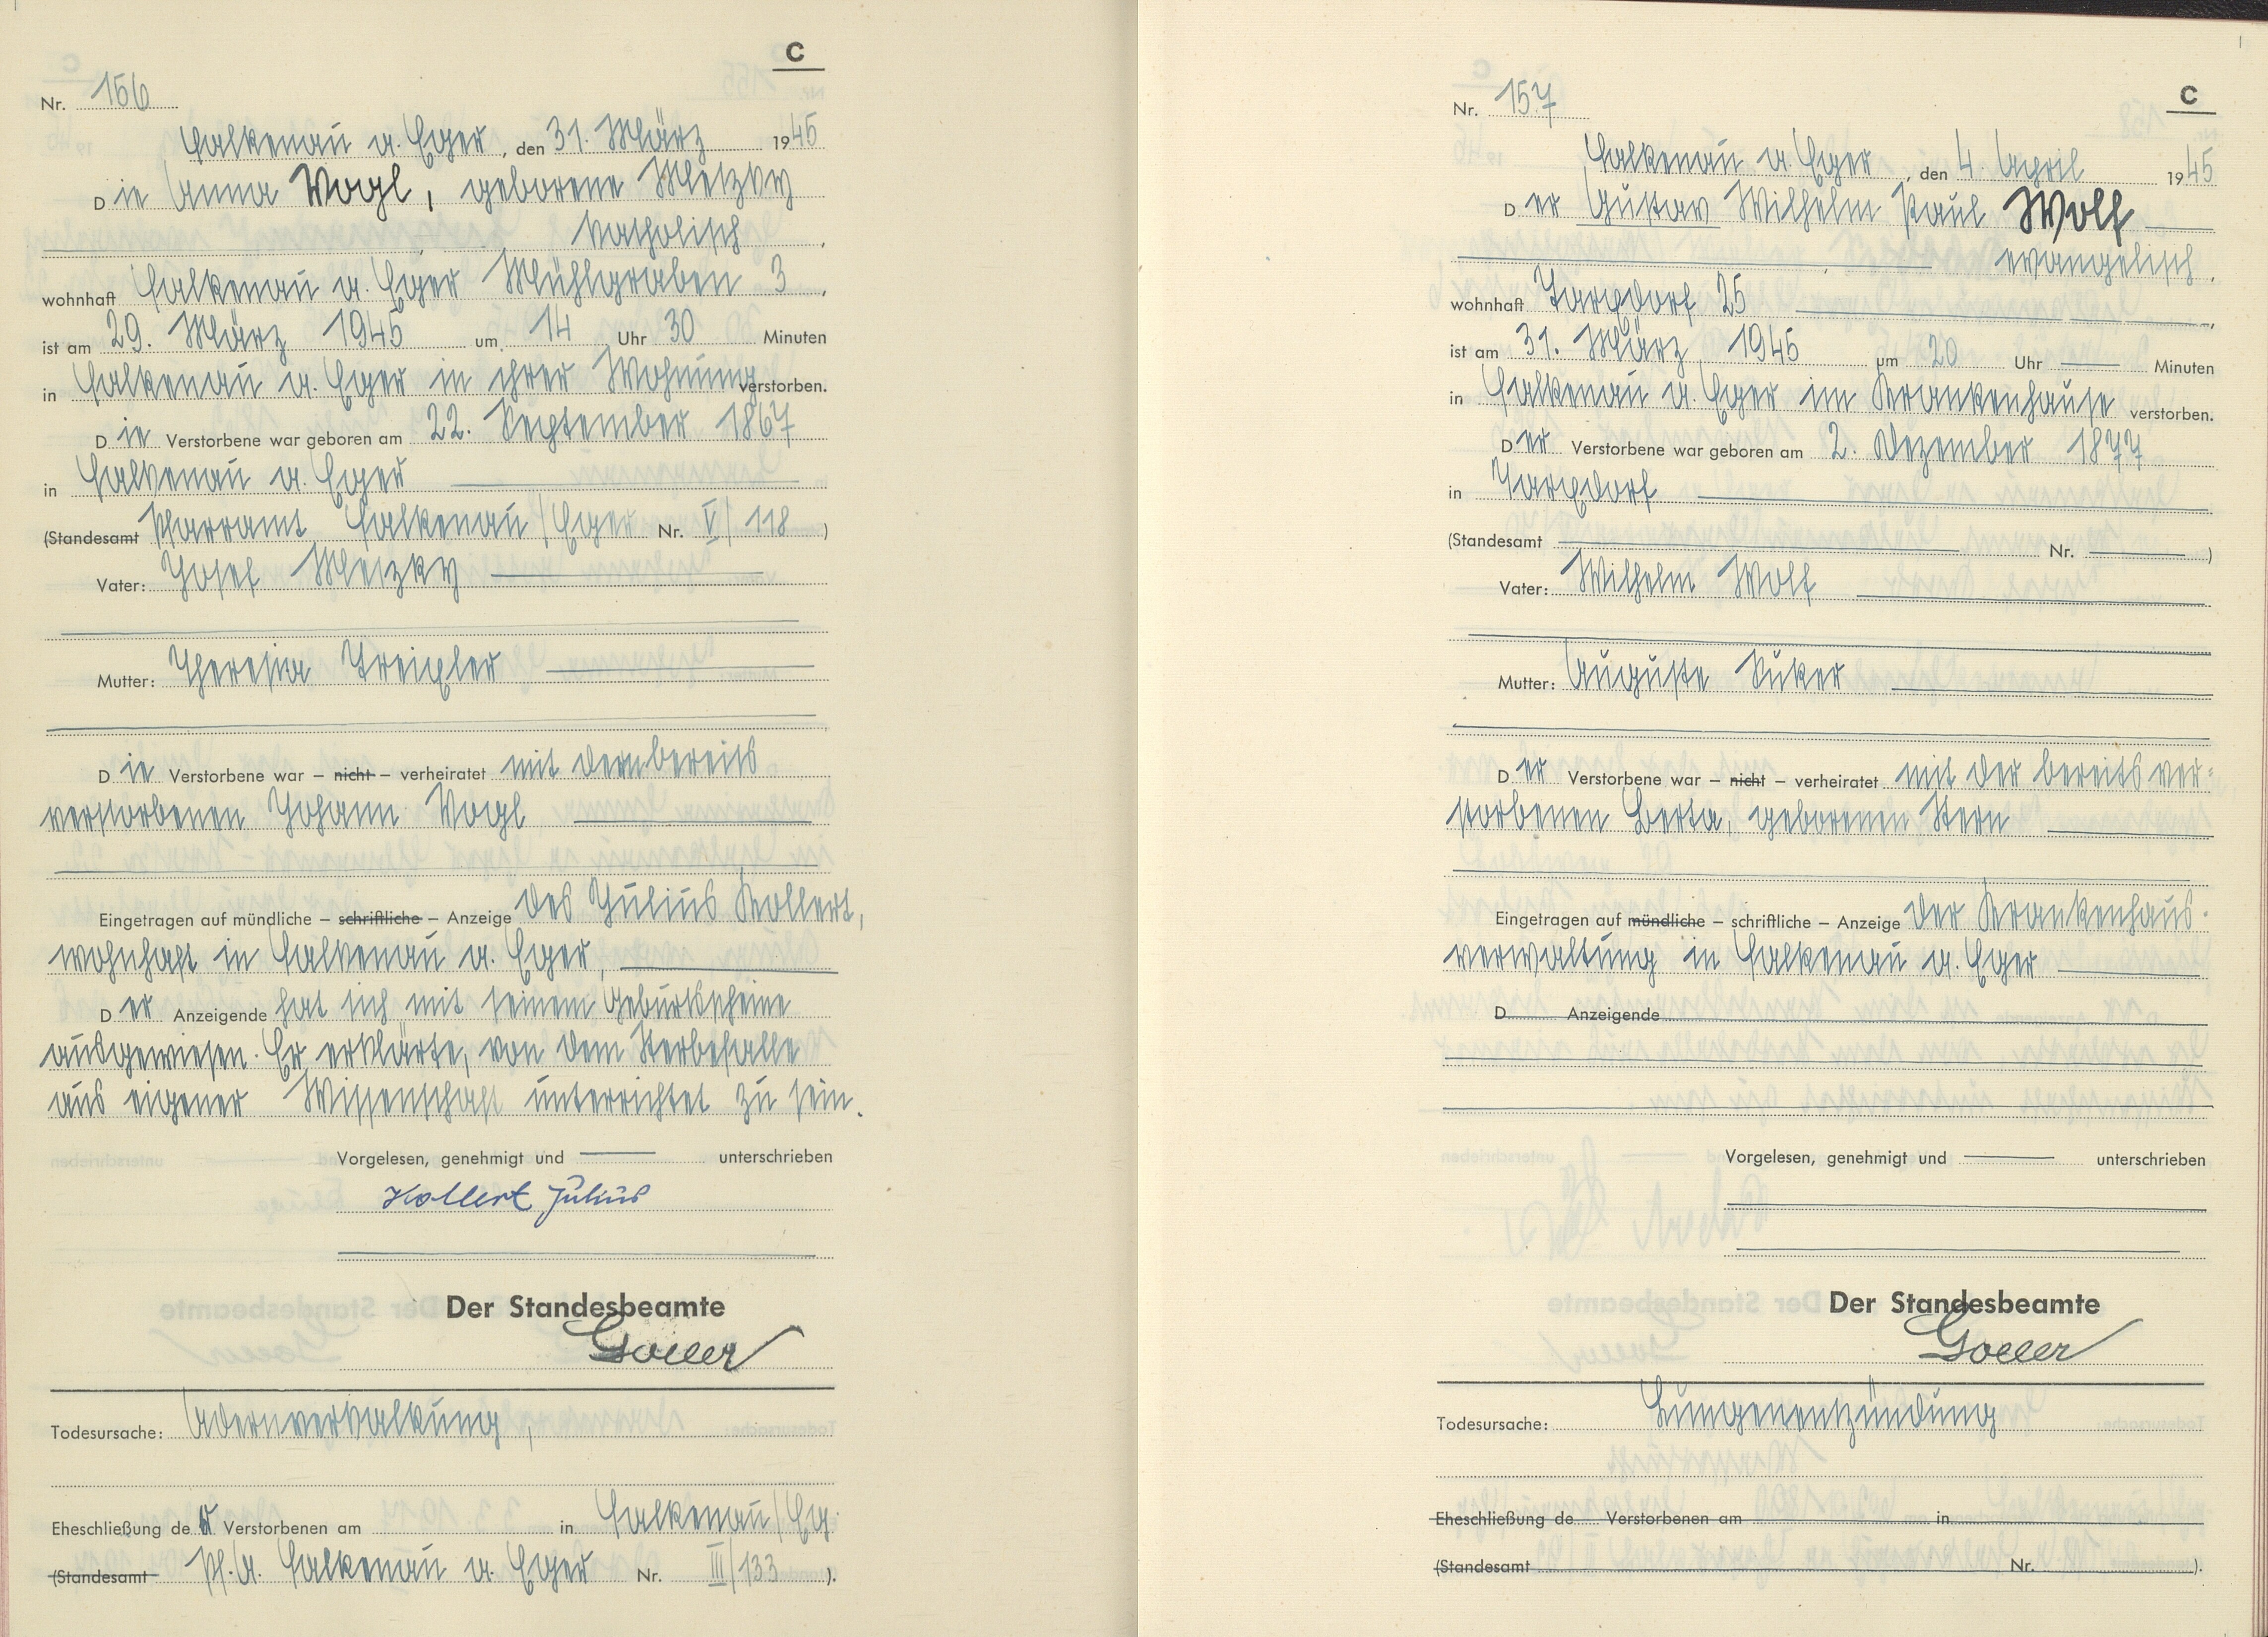 C
Nr. 156
Falkenau a. Eger, den 31. März 1945
Die Anna Vogl, geborene Meizky
katholisch,
wohnhaft Falkenau a. Eger Mühlgraben 3,
ist am 29. März 1945 um 14 Uhr 30 Minuten
in Falkenau a. Eger in ihrer Wohnung verstorben.
Die Verstorbene war geboren am 22. September 1867
in Falkenau a. Eger
(Standesamt Pfarramt Falkenau/Eger Nr. V/118)
Vater: Josef Meizky
Mutter: Theresia
Die Verstorbene war – nicht – verheiratet mit dem bereits
verstorbenen Johann Vogl
Eingetragen auf mündliche – schriftliche – Anzeige des Julius Kollert,
wohnhaft in Falkenau a. Eger,
Der Anzeigende hat sich mit seinem Geburtsscheine
ausgewiesen. Er erklärte, von dem Sterbefalle
aus eigener Wissenschaft unterrichtet zu sein.
Vorgelesen, genehmigt und unterschrieben
Kollert Julius
Der Standesbeamte
Goller
Todesursache: Adernverkalkung,
Eheschließung der Verstorbenen am in Falkenau/Eg.
(Standesamt Pf.A. Falkenau a. Eger Nr. III/133).
C
Nr. 157
Falkenau a. Eger, den 4. April 1945
Der Gustav Wilhelm Paul Wolf
evangelisch,
wohnhaft 25
ist am 31. März 1945 um 20 Uhr Minuten
in Falkenau a. Eger im Krankenhause verstorben.
Der Verstorbene war geboren am 2. Dezember 1877
in
(Standesamt Nr. )
Vater: Wilhelm Wolf
Mutter: Auguste Suker
Der Verstorbene war – nicht – verheiratet mit der bereits ver-
storbenen Berta, geborenen Stern
Eingetragen auf mündliche – schriftliche – Anzeige der Krankenhaus-
verwaltung in Falkenau a. Eger
D Anzeigende
Vorgelesen, genehmigt und unterschrieben
Der Standesbeamte
Goller
Todesursache: Lungenentzündung
Eheschließung de Verstorbenen am in
(Standesamt Nr. ).